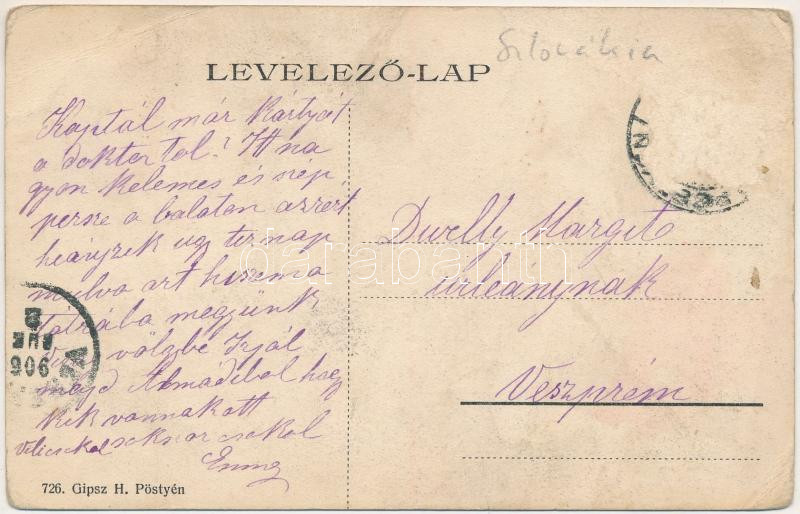 Silovákia
LEVELEZŐ-LAP
Kaptál már kártyát
a doktertol? Itt na
gyon kelemes és szép
persze a balaton azzert
hiányzik ugy tiznap
mulva azt hiszem a
Tátrába megyünk
völgbe Irjál
majd Almádibol hogy
kik vannak ott
sokszor csokol
Duelly Margit
urleánynak
Veszprém
906
726. Gipsz H. Pöstyén
darabanth